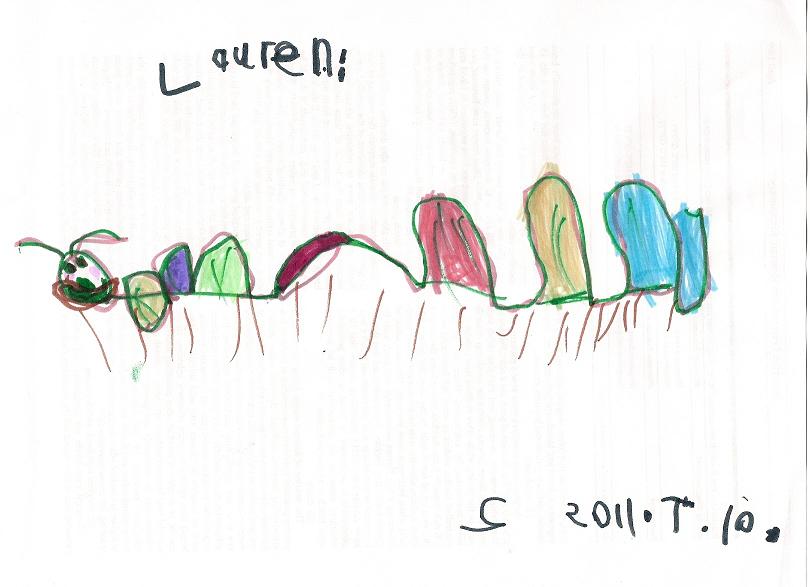 Lauren
2011.T.10.